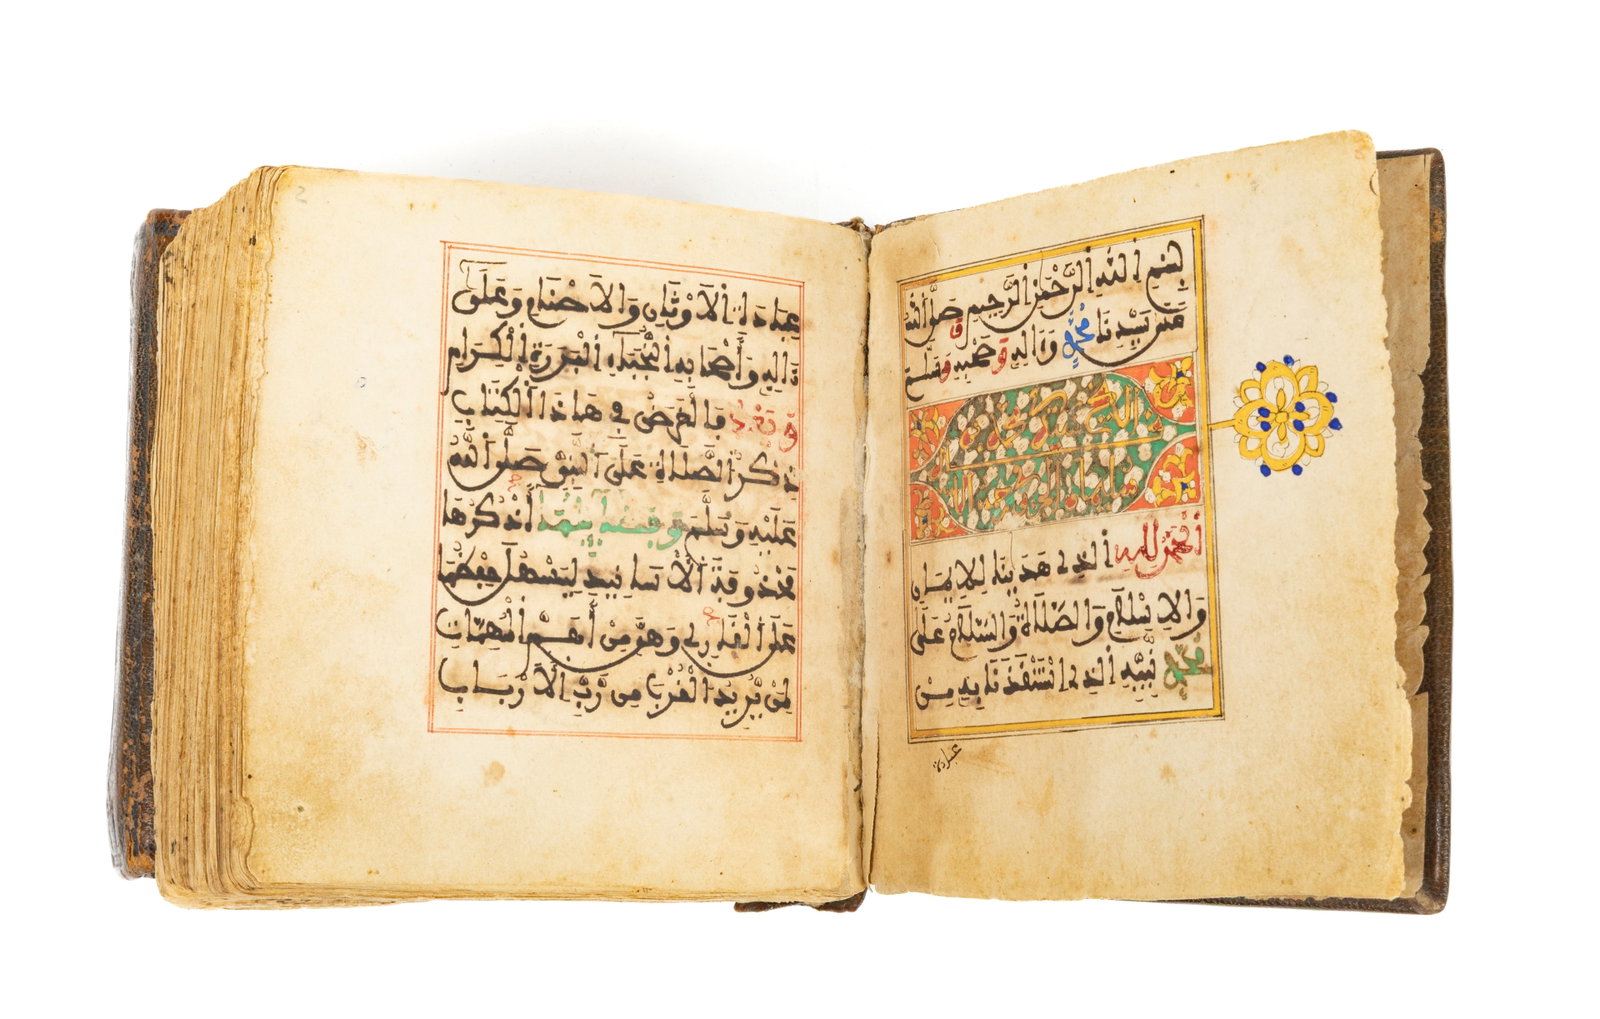 بسم الله الرحمن الرحيم صلى الله
على سيدنا محمد وءاله وصحبه وسلم
الحمد لله الذي هدينا للايمان
والاسلام والصلاة والسلام على
محمد نبيه الذي استنقذنا به من
عبادة
2
عبادة الاوثان والاصنام وعلى
ءاله وأصحابه النجباء البررة الكرام
وبعد فالغرض في هاذا الكتاب
ذكر الصلاة على النبي صلى الله
عليه وسلم نذكرها
محذوفة الاسانيد ليسهل حفظها
على القارئ وهي من أهم المهمات
لمن يريد القرب من رب الارباب